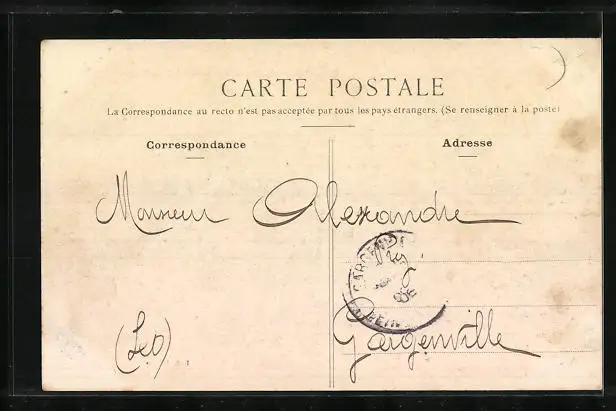 CARTE POSTALE
La Correspondance au recto n'est pas acceptée par tous les pays étrangers. (Se renseigner à la poste)
Correspondance
Adresse
Monsieur Alexandre
GARGENV
Gargenville